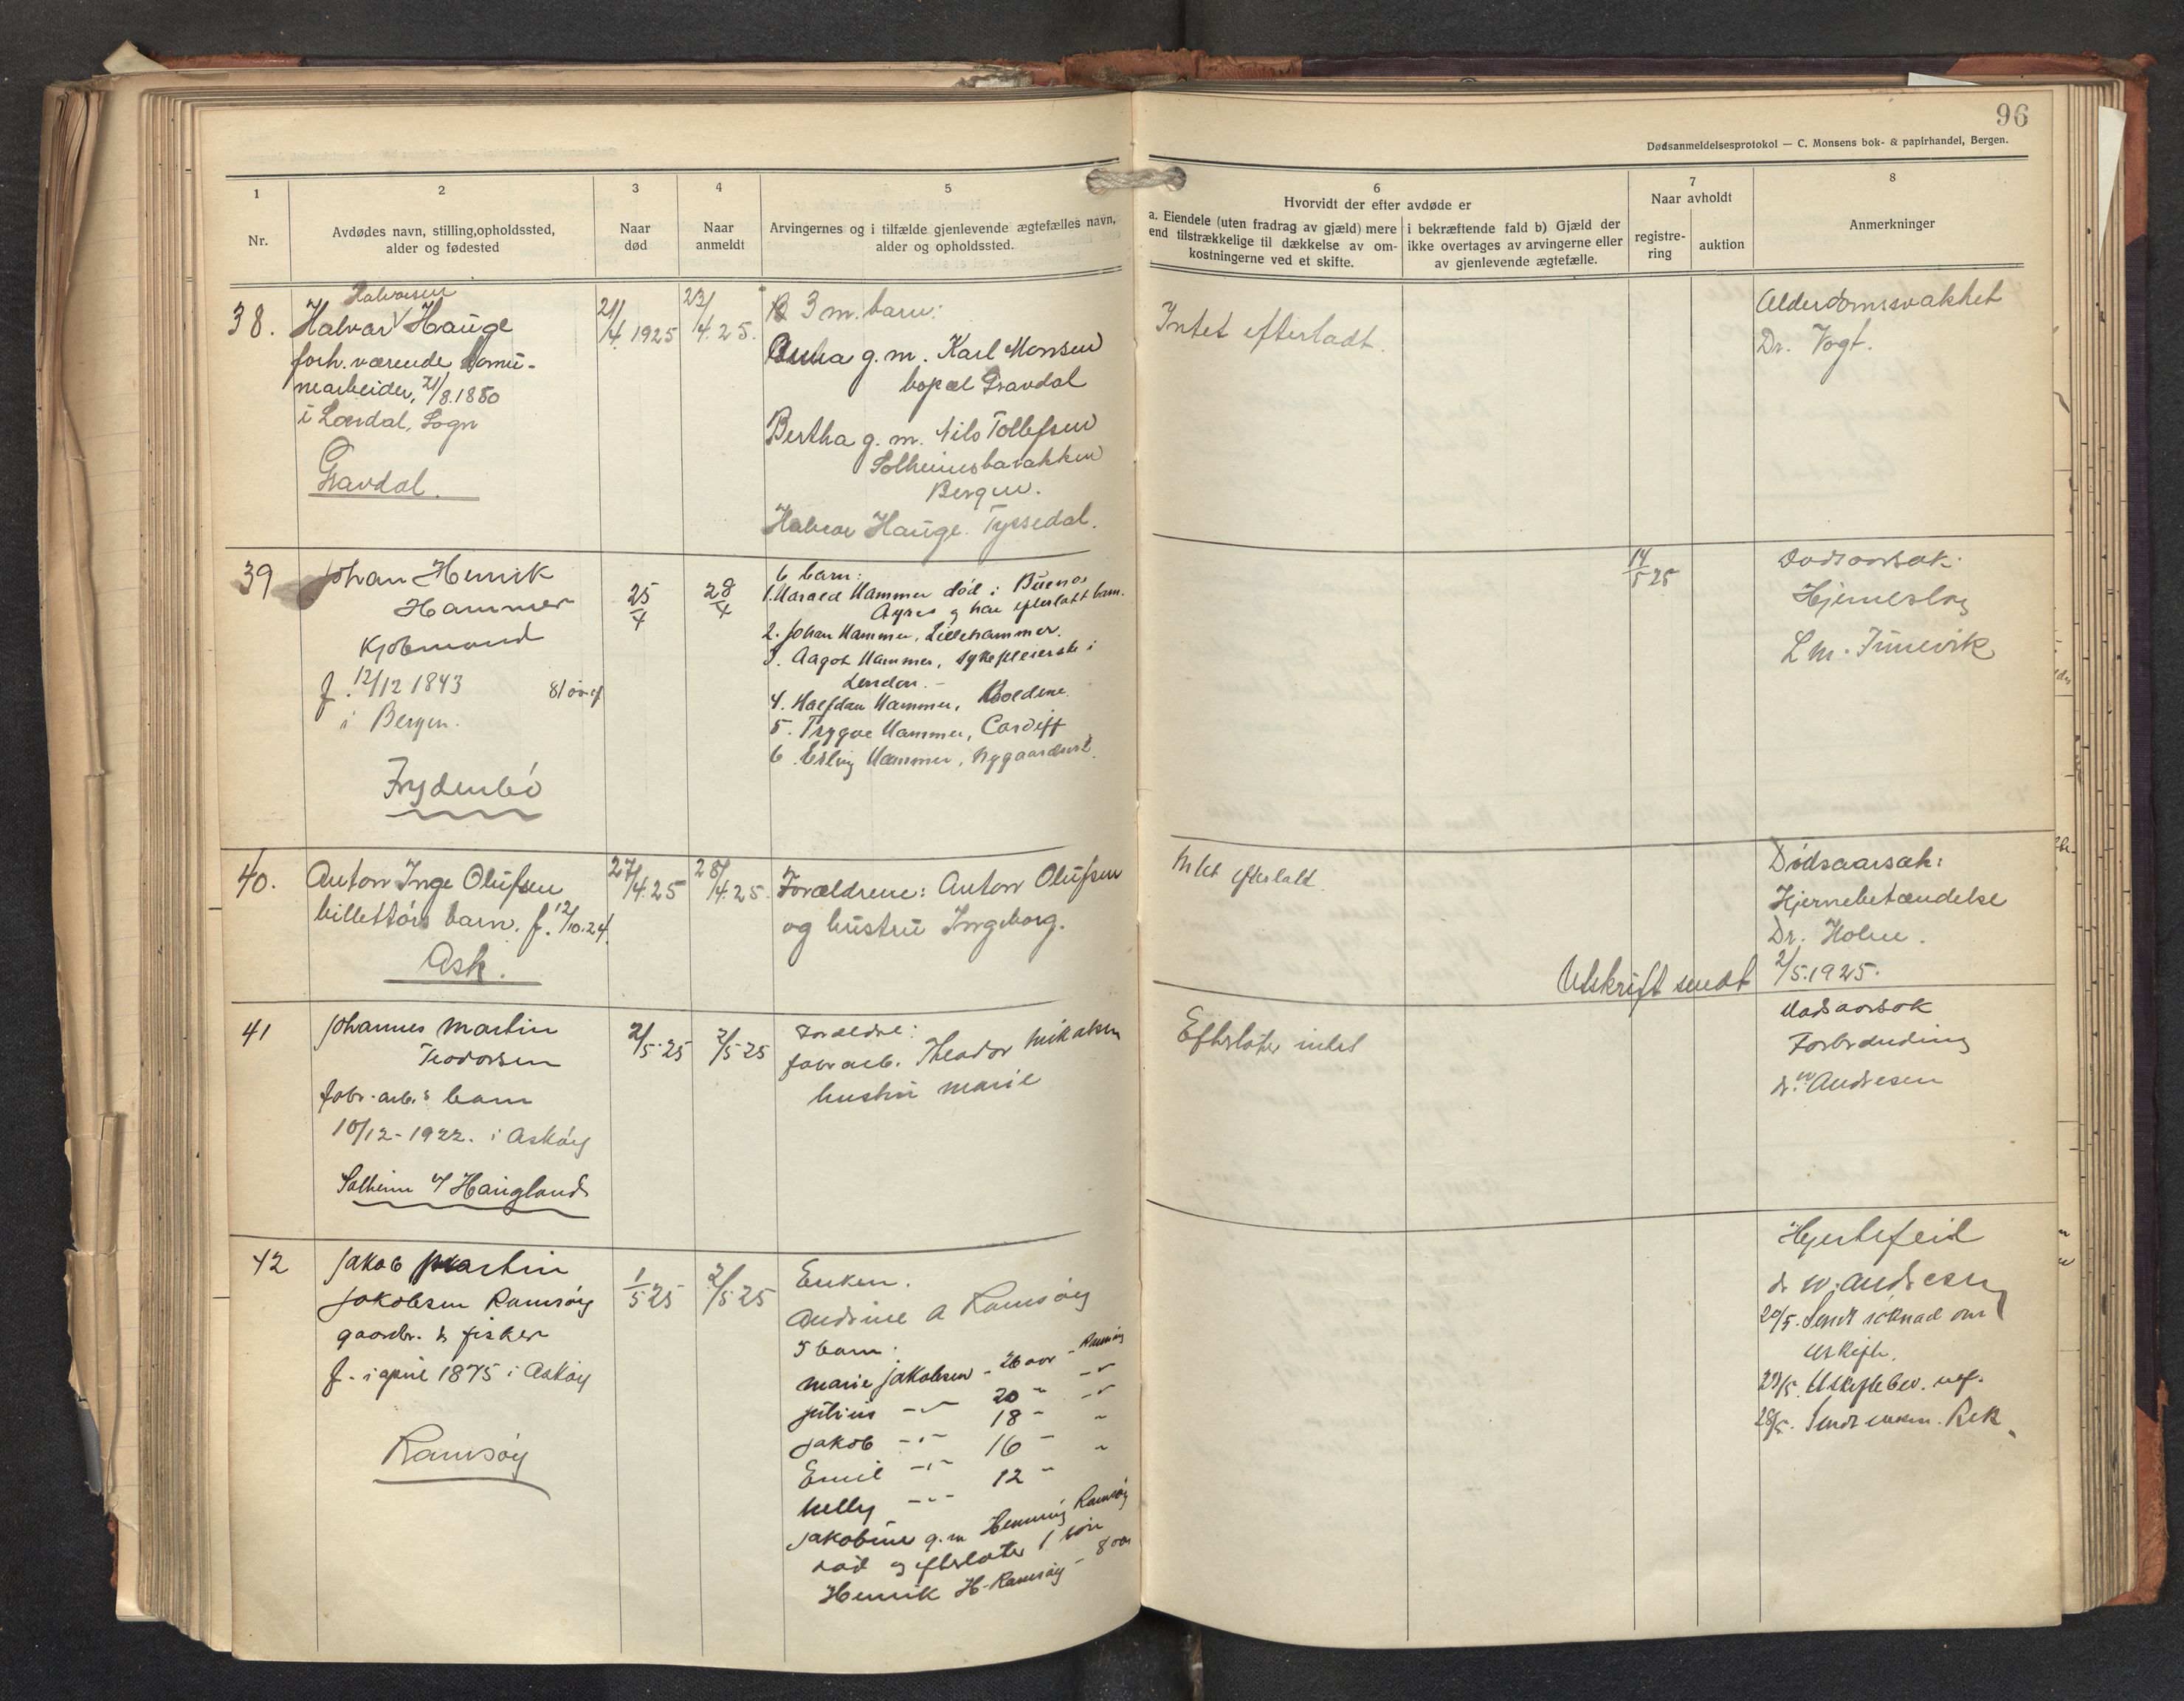 96
Dødsanmeldelsesprotokol — C. Monsens bok- & papirhandel, Bergen.
1
Nr.
2
Avdødes navn, stilling, opholdssted,
alder og fødested
3
Naar
død
4
Naar
anmeldt
5
Arvingernes og i tilfælde gjenlevende ægtefælles navn,
alder og opholdssted.
6
Hvorvidt der efter avdøde er
a. Eiendele (uten fradrag av gjæld) mere
end tilstrækkelige til dækkelse av om-
kostningerne ved et skifte.
i bekræftende fald b) Gjæld der
ikke overtages av arvingerne eller
av gjenlevende ægtefælle.
7
Naar avholdt
registre-
ring
auktion
8
Anmerkninger
38.
Halvorsen
Halvar Hauge
forh. værende
nearbeider, 21/8.1850
i Lærdal, Sogn
Gravdal.
21/4 1925
23/4.25.
3 m. barn:
Anna g. m. Karl Monsen
bopæl Gravdal
Bertha g. m. Nils Tollefsen
Solheimsbarakken
Bergen.
Halvar Hauge. Tyssedal.
Intet efterladt.
Alderdomssvakhet
Dr. Vogt.
39
Johan Henrik
Hammer
Kjøbmand
f. 12/12 1843 81 år
i Bergen.
Frydenbø
25/4
28/4
6 barn:
1. Harald Hammer død i Buenos
Ayres og har efterlatt barn.
2. Johan Hammer, Lillehammer.
3. Aagot Hammer, sykepleierske i
London. -
4. Halfdan Hammer,
5. Trygve Hammer, Cardiff
6. Erling Hammer,
14/5 25
Dødsaarsak:
Hjerneslag
40.
Anton Inge Olufsen
billettørs barn. f. 12/10.24.
Ask.
27/4.25
28/4.25.
Forældrene: Anton Olufsen
og hustru Ingeborg.
Intet efterlatt.
Dødsaarsak:
Hjernebetændelse
Dr. Holm.
Utskrift sendt 2/5.1925.
41
Johannes Martin
Teodorsen
fabr. arb.s barn
10/12 - 1922. i Askøy
Solheim Haugland
2/5 25
2/5 25
Forældre:
fabr arb. Theodor Mikalsen
hustru Marie
Efterlater intet
Dødsaarsak
Forbrænding
dr. W. Andresen
42
Jakob Martin
Jakobsen Ramsøy
gaardbr. & fisker
f. i april 1875 i Askøy
Ramsøy
1/5 25
2/5 25
Enken.
Andrine A Ramsøy
5 barn:
Marie Jakobsen - 26 aar - Ramsøy
Julius -"- 20 " -"-
Jakob -"- 18 - "
Emil -"- 16 - "
Nelly -"- 12 "
Jakobine g. m Henning Ramsøy
død og efterlater 1 søn
Henrik H. Ramsøy - 8 aar
Hjertefeil
dr W. Andresen
20/5. Sendt søknad om
uskifte.
23/5. Uskiftebev. utf.
28/5. Sendt enken. Rek.